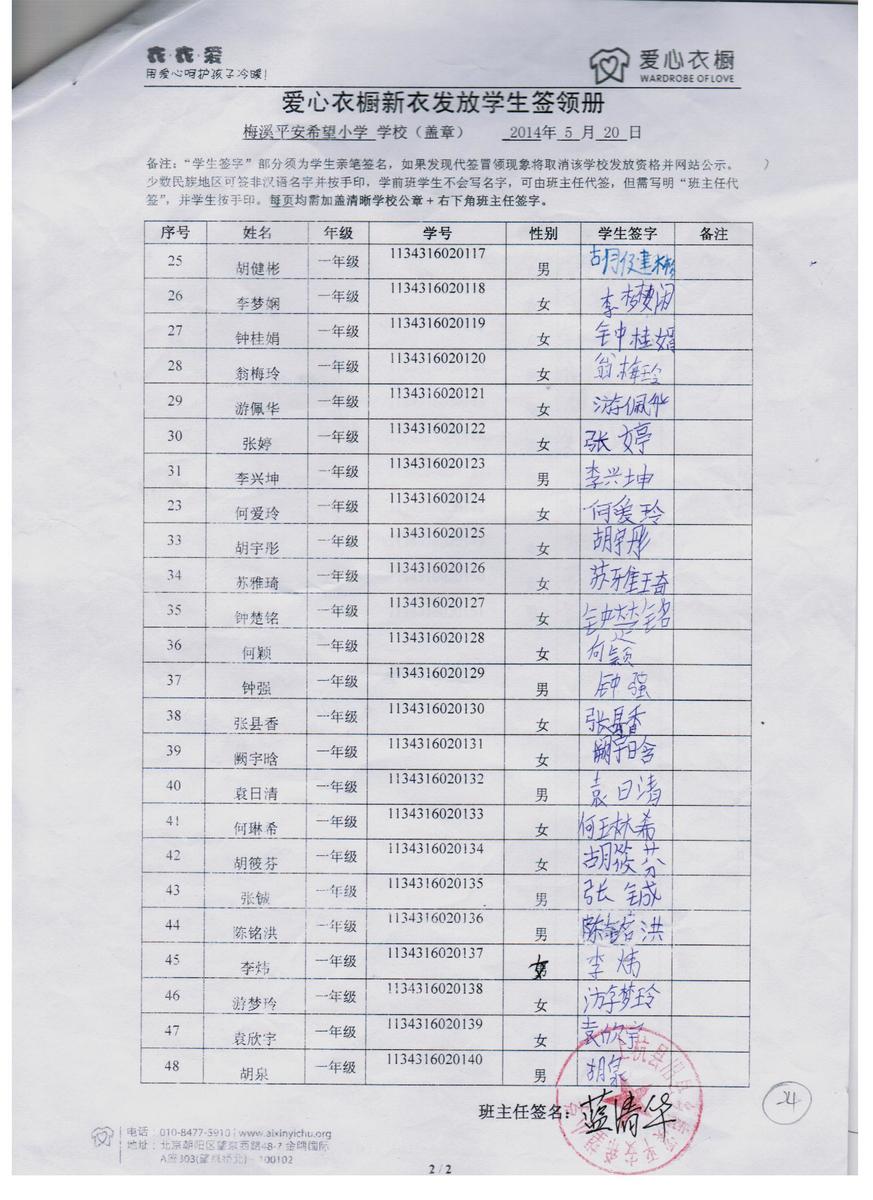 衣·衣·爱
用爱心呵护孩子冷暖!
爱心衣橱
WARDROBE OF LOVE
爱心衣橱新衣发放学生签领册
梅溪平安希望小学 学校（盖章） 2014年 5 月 20 日
备注：“学生签字”部分须为学生亲笔签名，如果发现代签冒领现象将取消该学校发放资格并网站公示。
少数民族地区可签非汉语名字并按手印，学前班学生不会写名字，可由班主任代签，但需写明“班主任代
签”，并学生按手印。每页均需加盖清晰学校公章+右下角班主任签字。
序号 姓名 年级 学号 性别 学生签字 备注
25 胡健彬 一年级 1134316020117 男 胡健彬
26 李梦娴 一年级 1134316020118 女 李梦娴
27 钟桂娟 一年级 1134316020119 女 钟桂娟
28 翁梅玲 一年级 1134316020120 女 翁梅玲
29 游佩华 一年级 1134316020121 女 游佩华
30 张婷 一年级 1134316020122 女 张婷
31 李兴坤 一年级 1134316020123 男 李兴坤
23 何爱玲 一年级 1134316020124 女 何爱玲
33 胡宇彤 一年级 1134316020125 女 胡宇彤
34 苏雅琦 一年级 1134316020126 女 苏雅琦
35 钟楚铭 一年级 1134316020127 女 钟楚铭
36 何颖 一年级 1134316020128 女 何颖
37 钟强 一年级 1134316020129 男 钟强
38 张县香 一年级 1134316020130 女 张县香
39 阙宇晗 一年级 1134316020131 女 阙宇晗
40 袁日清 一年级 1134316020132 男 袁日清
41 何琳希 一年级 1134316020133 女 何琳希
42 胡筱芬 一年级 1134316020134 女 胡筱芬
43 张铖 一年级 1134316020135 男 张铖
44 陈铭洪 一年级 1134316020136 男 陈铭洪
45 李炜 一年级 1134316020137 女 李炜
46 游梦玲 一年级 1134316020138 女 游梦玲
47 袁欣宇 一年级 1134316020139 女 袁欣宇
48 胡泉 一年级 1134316020140 男 胡泉
班主任签名：蓝清华
24
电话：010-8477-5910 | www.aixinyichu.org
地址：北京朝阳区望京西路48-7 金隅国际
A座303 100102
2 / 2